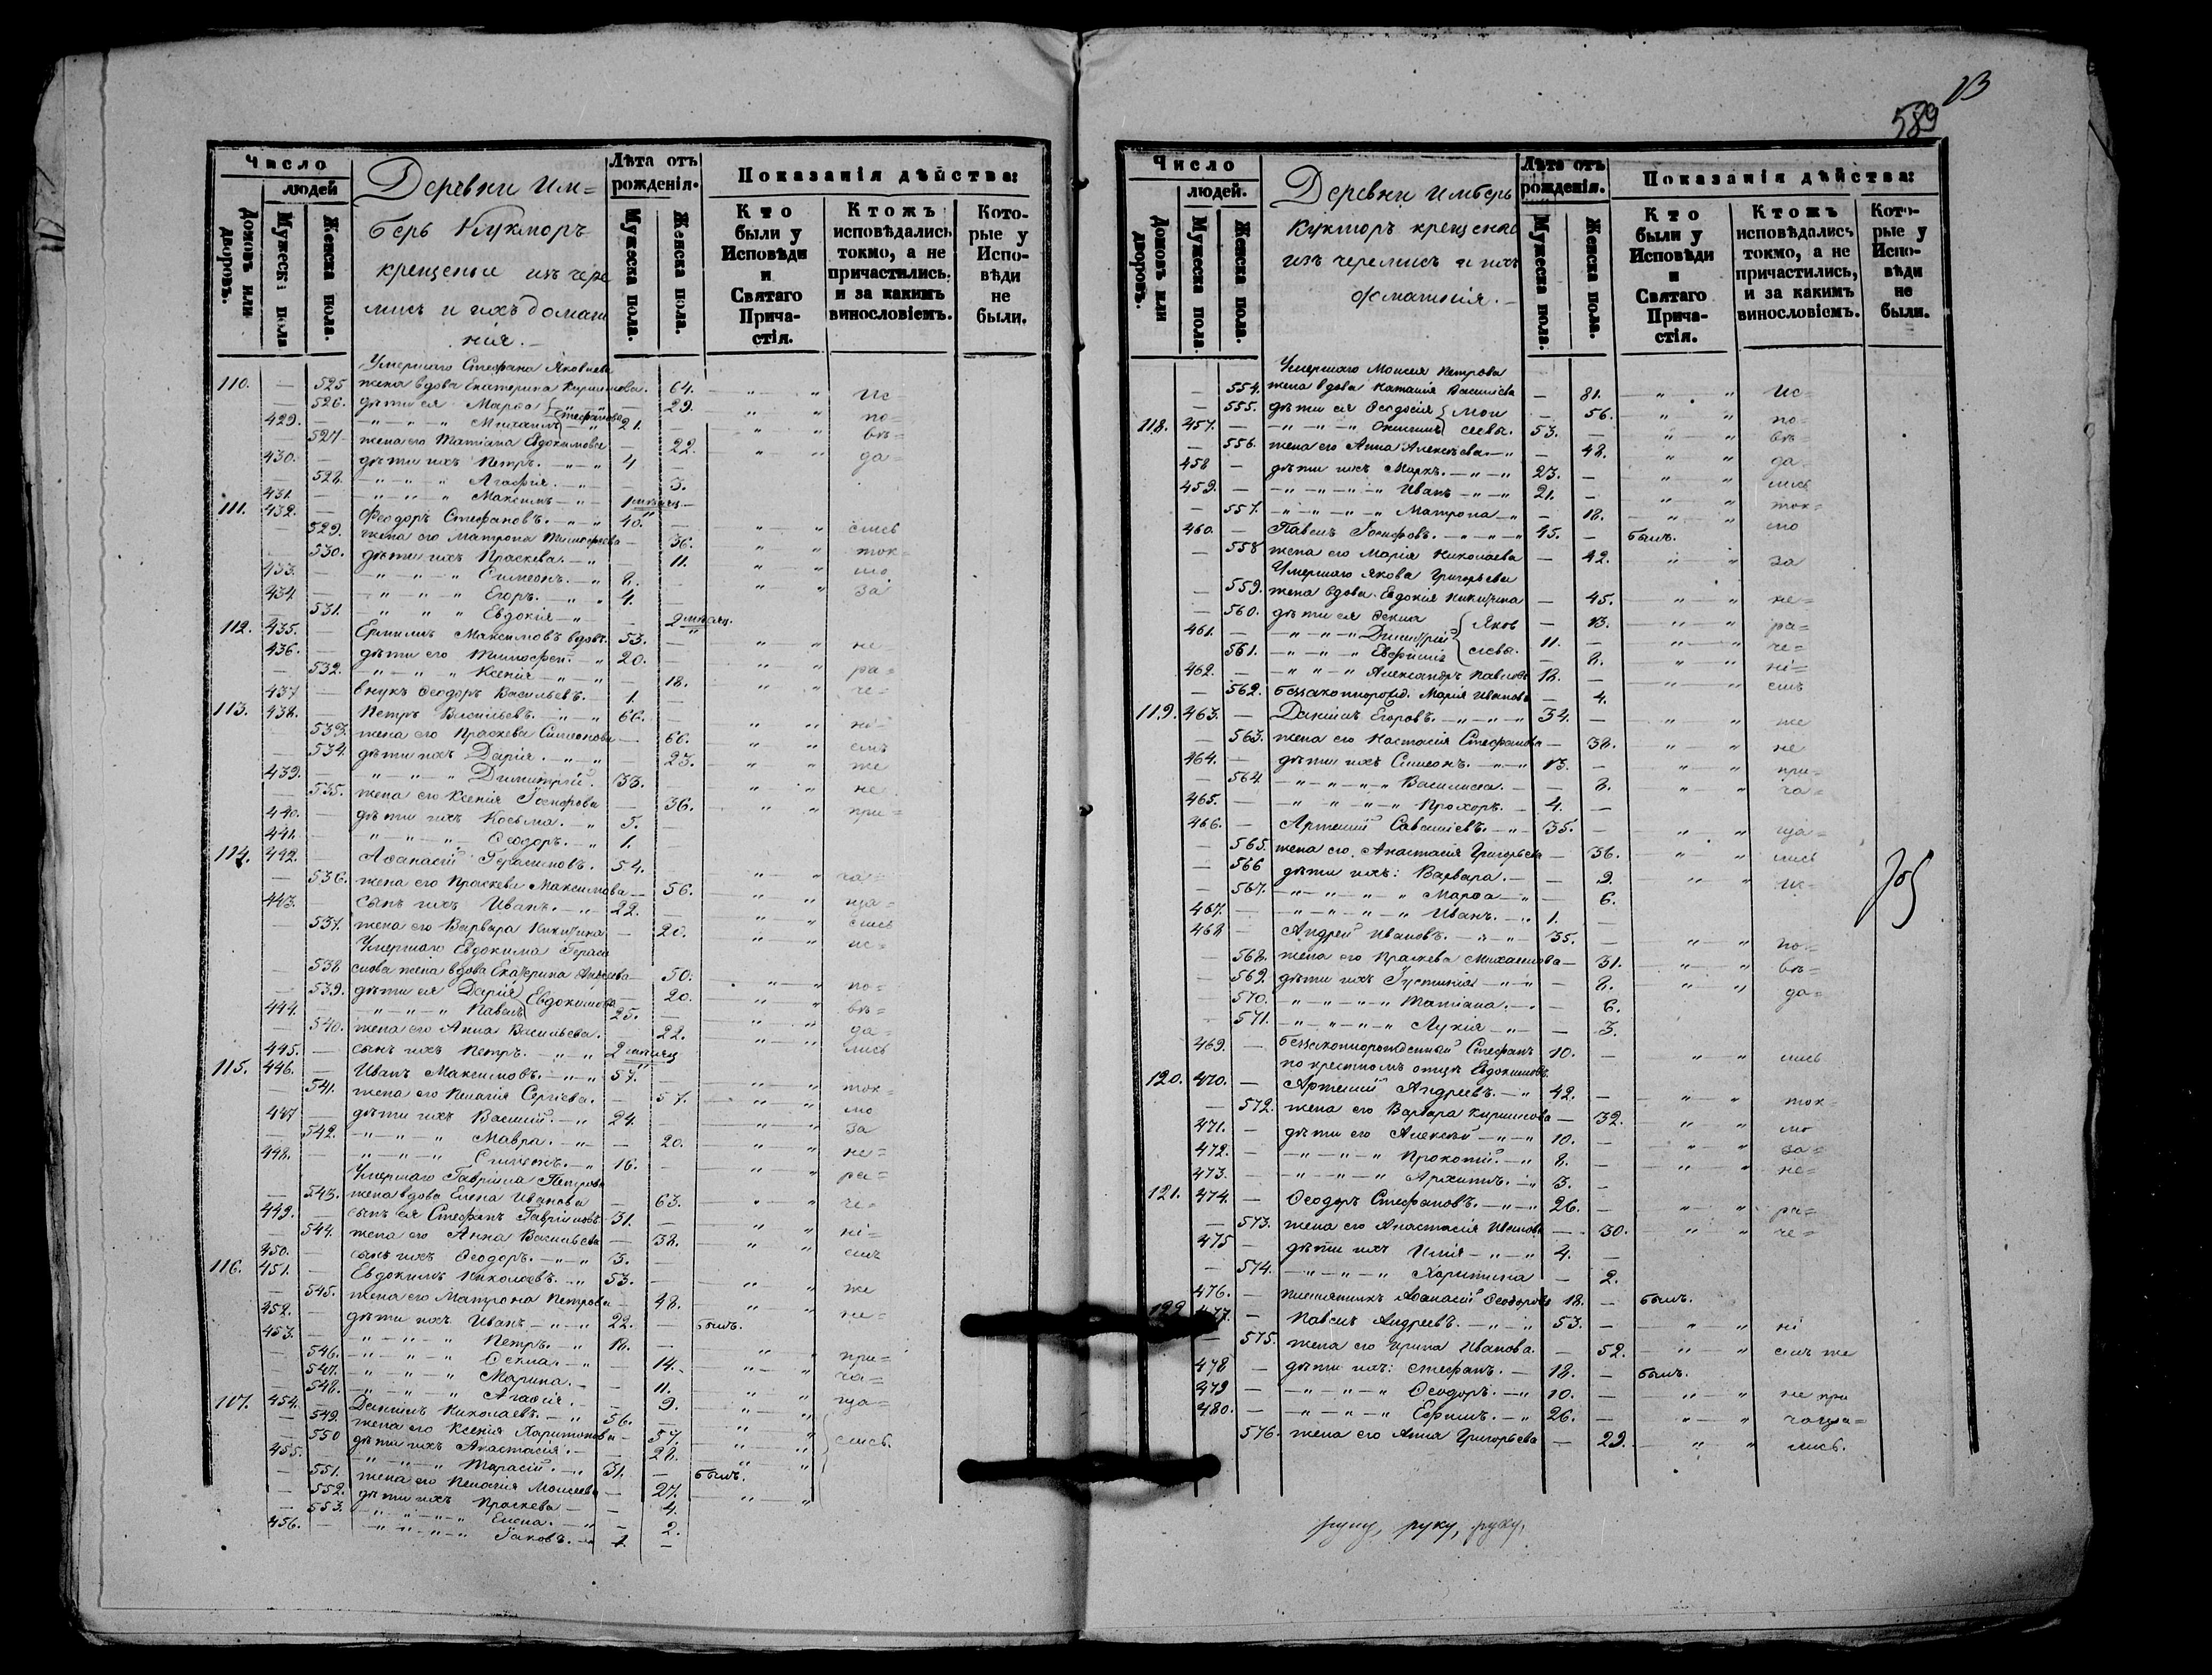 13
589
Число
людей
Домовъ или дворовъ.
Мужеска пола
Женска пола.
Деревни Им=
берь Кукморъ
крещеные изъ чере
мисъ и ихъ домаш
нія.
Лѣта отъ рожденія.
Мужеска пола.
Женска пола.
Показанія дѣйства:
Кто были у Исповѣди и Святаго Причастія.
Ктожъ исповѣдались токмо, а не причастились. и за какимъ винословіемъ.
Которые у Исповѣди не были.
Умершаго Стефана Яковлева
110. — 525 жена вдова Екатерина Кирилова. 64. " " Ис
— 526. дѣти ея Марѳа — 29. " " по=
429. — " " " Михаилъ Стефановы 21. — " " вѣ=
— 527 жена его Татіана Евдокимова — 22. " " да=
430. — дѣти ихъ Петръ. " " 4 —
— 528. " " " Агафія. " — 3.
431. — " " " Максимъ " 1 мѣсяц —
111. 432. — Феодоръ Стефановъ. " " 40. — " " лись
529. жена его Матрона Тимофеева — 36. " " ток=
530. дѣти ихъ Праскева. " — 11. " " мо
433. — " " " Симеонъ. " 8. — " " за
434 — " " " Егоръ. " " 4. —
— 531. " " " Евдокія " — 2 мѣсяц.
112. 435. — Ермилъ Максимовъ вдовъ. 53. — " " не
436. — дѣти его Тимофей. " 20. — " " ра=
— 532. " " " Ксенія " " — 18. " " че=
437. — внукъ Ѳеодоръ Васильевъ. 1. —
113. 438. — Петръ Васильевъ. " " 66. — " " ні=
533. жена его Праскева Симеонова — 66. " " емъ
— 534. дѣти ихъ Дарія. " " — 23. " " же
439. — " " " Димитрій 33. — " " не
— 535. жена его Ксенія Іосифова — 36. " " при=
440. — дѣти ихъ Косьма. " 5. —
441. — " " " Ѳеодоръ. " 1. —
114. 442. — Аѳанасій Герасимовъ. 54. — " " ча=
— 536. жена его Праскева Максимова — 56. " " ща=
443. — сынъ ихъ Иванъ. " 22. — " " лись
— 537. жена его Варвара Никитина — 20. " " ис=
Умершаго Евдокима Гераси
— 538 мова жена вдова Екатерина Андреева — 50. " " по=
— 539. дѣти ея Дарія Евдокимовы — 20. " " вѣ=
444. — " " " Павелъ 25. — " " да=
— 540. жена его Анна Васильева. 22. " " лись
445. — сынъ ихъ Петръ. " " 2 мѣсяц —
115. 446. — Иванъ Максимовъ. " " 57. — " " ток=
— 541. жена его Пелагія Сергіева. — 57. " " мо
447 — дѣти ихъ Василій. " 24. — " " за
— 542. " " " Мавра. " — 20. " " не=
448. — " " " Симеонъ. " 16. — " " ра=
Умершаго Гавріила Петрова
— 543. жена вдова Елена Иванова — 63. " " че=
449. — сынъ ея Стефанъ Гавріиловъ 31. — " " ні=
— 544. жена его Анна Васильева — 38. " " емъ
450. — сынъ ихъ Ѳеодоръ. " " 3. —
116. 451. — Евдокимъ Николаевъ. " 53. — " " же
— 545. жена его Матрона Петрова — 48. " " не=
452. — дѣти ихъ Иванъ " " 22. — былъ.
453. — " " " Петръ. " 18. — " " при=
— 546. " " " Ѳекла. " — 14. " " ча=
— 547. " " " Марина. — 11. " " ща=
— 548. " " " Агаѳія. — 9.
117. 454. — Даніилъ Николаевъ. " 56. — " "
— 549. жена его Ксенія Харитонова — 57. " " лись.
— 550 дѣти ихъ Анастасія. — 28. " "
455. — " " " Тарасій. " 31. — былъ.
— 551. жена его Пелагія Моисеева — 27. " "
— 552. дѣти ихъ Праскева — 4.
— 553. " " " Елена. " — 2.
456. — " " " Іаковъ. 1 —
Число
людей.
Домовъ или дворовъ.
Мужеска пола.
Женска пола.
Деревни Имберь
Кукморъ крещеные
изъ черемисъ и ихъ
домашнія.
Лѣта отъ рожденія.
Мужеска пола.
Женска пола.
Показанія дѣйства:
Кто были у Исповѣди и Святаго Причастія.
Ктожъ исповѣдались токмо, а не причастились, и за какимъ винословіемъ.
Которые у Исповѣди не были.
Умершаго Моисея Петрова
— 554. жена вдова Наталія Василіева — 81. " " Ис=
— 555. дѣти ея Ѳеодосія Мои — 56. " " по=
118. 457. — " " " сеевы. 53. — " " вѣ=
— 556. жена его Анна Алексѣева. " — 48. " " да=
458 — дѣти ихъ Маркъ. " " 23. — " " лись
459. — " " " " Иванъ " " 21. — " " ток=
— 557. " " " " Матрона " — 18. " " мо
460. — Павелъ Іосифовъ. " " " 45. — былъ.
— 558 жена его Марія Николаева — 42. " " за
Умершаго Якова Григорьева
— 559. жена вдова Евдокія Никитина — 45. " " не=
— 560. дѣти ея Ѳекла Яков — 13. " " ра=
461. — " " " Димитрій левы. 11. — " " че=
561. " " " Евфимія — 8. " " ні=
462. — " " " Александръ Павловъ 18. — " " емъ
— 562. беззаконнорожд. Марія Иванова — 4.
119. 463. — Даніилъ Егоровъ. " " " 34. — " " же
— 563. жена его Настасія Стефанова — 38. " " не
464. — дѣти ихъ Симеонъ. " 13. — " " при=
— 564 " " " " Василиса. — 8. " " ча=
465. — " " " " Прохоръ. 4. —
466. — Артемій Савеліевъ. " 35. — " " ща=
— 565. жена его Анастасія Григорьева — 36. " " лись
— 566 дѣти ихъ: Варвара. — 9. " " ис=
— 567. " " " " Марѳа " — 6.
467. — " " " " Иванъ. " 1. —
468 — Андрей Ивановъ. " " 35. — " " по=
— 568. жена его Праскева Михаилова — 31. " " вѣ=
— 569. дѣти ихъ Іустинія " " — 8. " " да=
— 570. " " " " Татіана. " — 6.
— 571. " " " " Лукія " — 3.
469. — беззаконнорожденный Стефанъ 10. — " " лись
по крестномъ отцѣ Евдокимовъ.
120. 470. — Артемій Андреевъ. " 42. — " " ток=
— 572. жена его Варвара Кирилова — 32. " " мо
471. — дѣти его Алексѣй " " 10. — " " за=
472. — " " " " Прокопій. " 8. — " " не=
473. — " " " " Архипъ. " 3. —
121. 474. — Ѳеодоръ Стефановъ. " " 26. — " " ра=
— 573. жена его Анастасія Иванова — 30. " " че=
475 — дѣти ихъ Илія " " 4. —
— 574. " " " " Харитина — 2.
476. — племянникъ Аѳанасій Ѳеодоровъ 18. — былъ.
122 477. — Павелъ Андреевъ. " " 53. — " " ні
— 575. жена его Ирина Иванова. — 52. " " емъ же
478 — дѣти ихъ: Стефанъ. 18. — былъ.
479 — " " " " Ѳеодоръ. " 10. — " " не при
480. — " " " " Ефимъ. " 26. — " " чаща=
576. жена его Анна Григорьева — 29. " " лись.
руку, руку, руку,